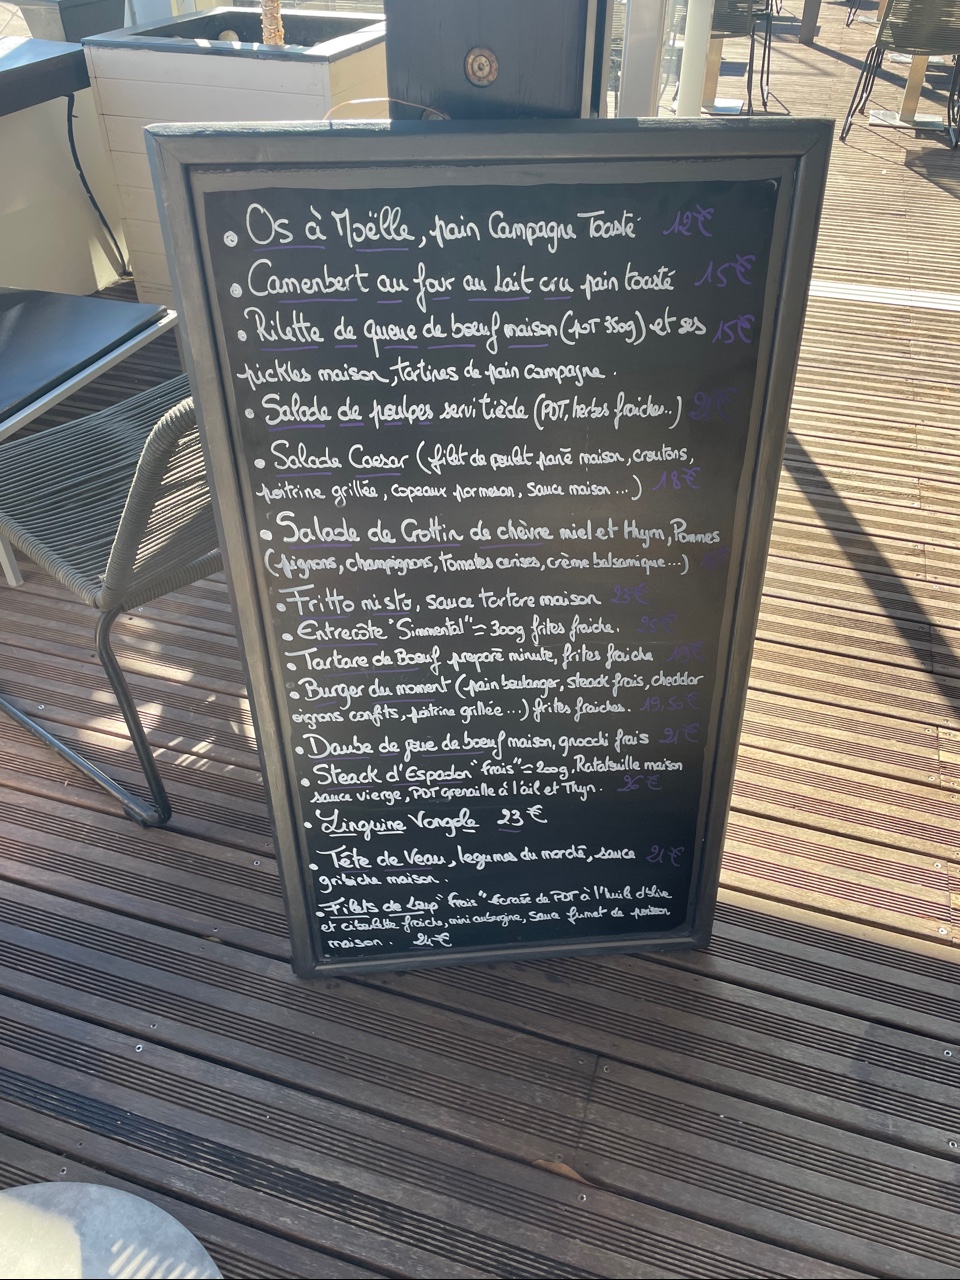 Os à Moëlle, pain Campagne Toasté 12€
Camenbert au four au Lait cru pain toasté 15€
Rilette de queue de bœuf maison (POT 350g) et ses 15€
pickles maison, tartines de pain campagne.
Salade de poulpes servi tiède (PDT, herbes fraiches..)
Salade Caesar (filet de poulet pané maison, croutons,
poitrine grillée, copeaux parmesan, sauce maison ...) 18€
Salade de Crottin de chèvre miel et thym, Pommes
(pignons, champignons, tomates cerises, crème balsamique...)
Fritto misto, sauce tartare maison 23€
Entrecôte "Simmental" = 300g frites fraiche.
Tartare de Bœuf preparé minute, frites fraiche
Burger du moment (pain boulanger, steack frais, cheddar
oignons confits, poitrine grillée ...) frites fraiches. 19,50€
Daube de joue de bœuf maison, gnocchi frais 21€
Steack d'Espadon "frais" = 200g, Ratatouille maison
sauce vierge, PDT grenaille à l'ail et Thyn. 26€
Linguine Vongole 23€
Tête de Veau, legumes du marché, sauce 21€
gribiche maison.
Filets de Loup "frais" Ecrasé de PDT à l'huile d'olive
et ciboulette fraiche, mini aubergine, sauce fumet de poisson
maison. 24€